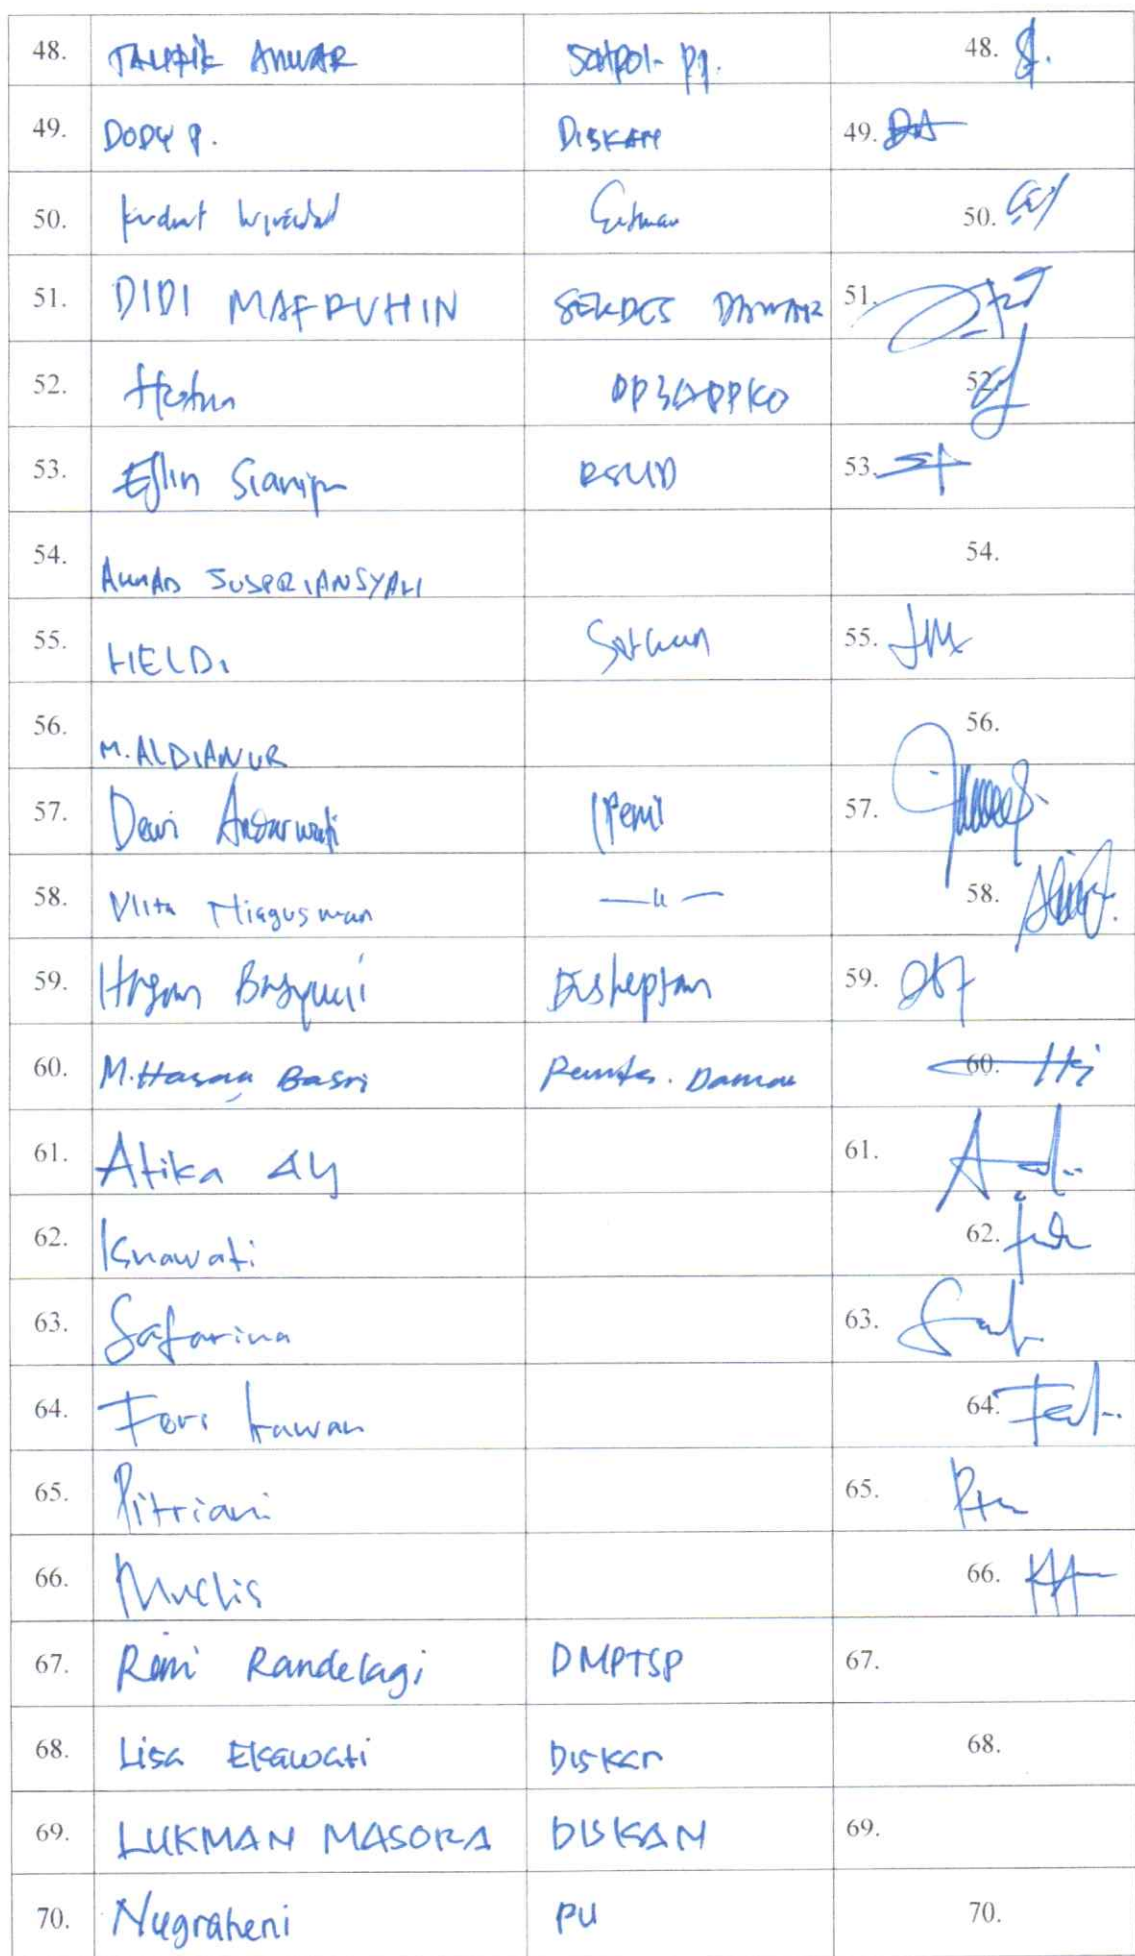 48. TAUPIK ANWAR Satpol-pp. 48.
49. DODY P. DISKAN 49.
50. 50.
51. DIDI MAFRUHIN SEKDES DAMAR 51.
52. DP3APPKB 52.
53. Eflin Sianipar RSUD 53.
54. AHMAD SUSPRIANSYAH 54.
55. HELDI 55.
56. M. ALDIANUR 56.
57. Dewi 57.
58. Miagusman —〃— 58.
59. Hasan Basyuni Diskeptan 59.
60. M. Hasan Basri Pemdes. Damar 60.
61. Atika Ay 61.
62. Isnawati 62.
63. Safarina 63.
64. Feri Irawan 64.
65. Pitriani 65.
66. Muclis 66.
67. Rimi Randelagi DMPTSP 67.
68. Lisa Ekawati Diskan 68.
69. LUKMAN MASORA DISKAN 69.
70. Nugraheni PU 70.